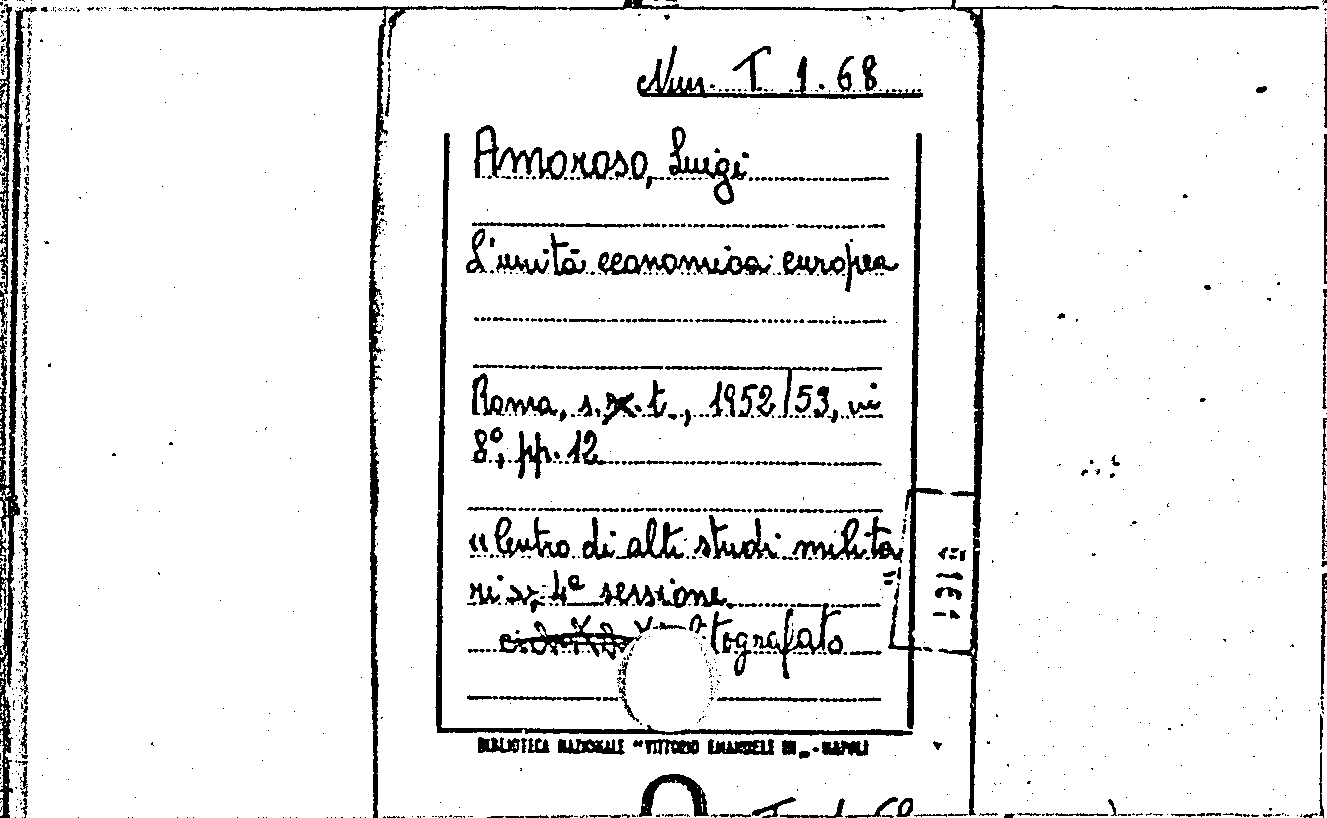 Nun. T 1.68
Amoroso, Luigi
L'unità economica europea
Roma, s.n.t., 1952/53, in
8°, pp. 12
"Centro di alti studi milita
ri", 4ª sessione
litografato
"1961"
BIBLIOTECA NAZIONALE "VITTORIO EMANUELE III" - NAPOLI